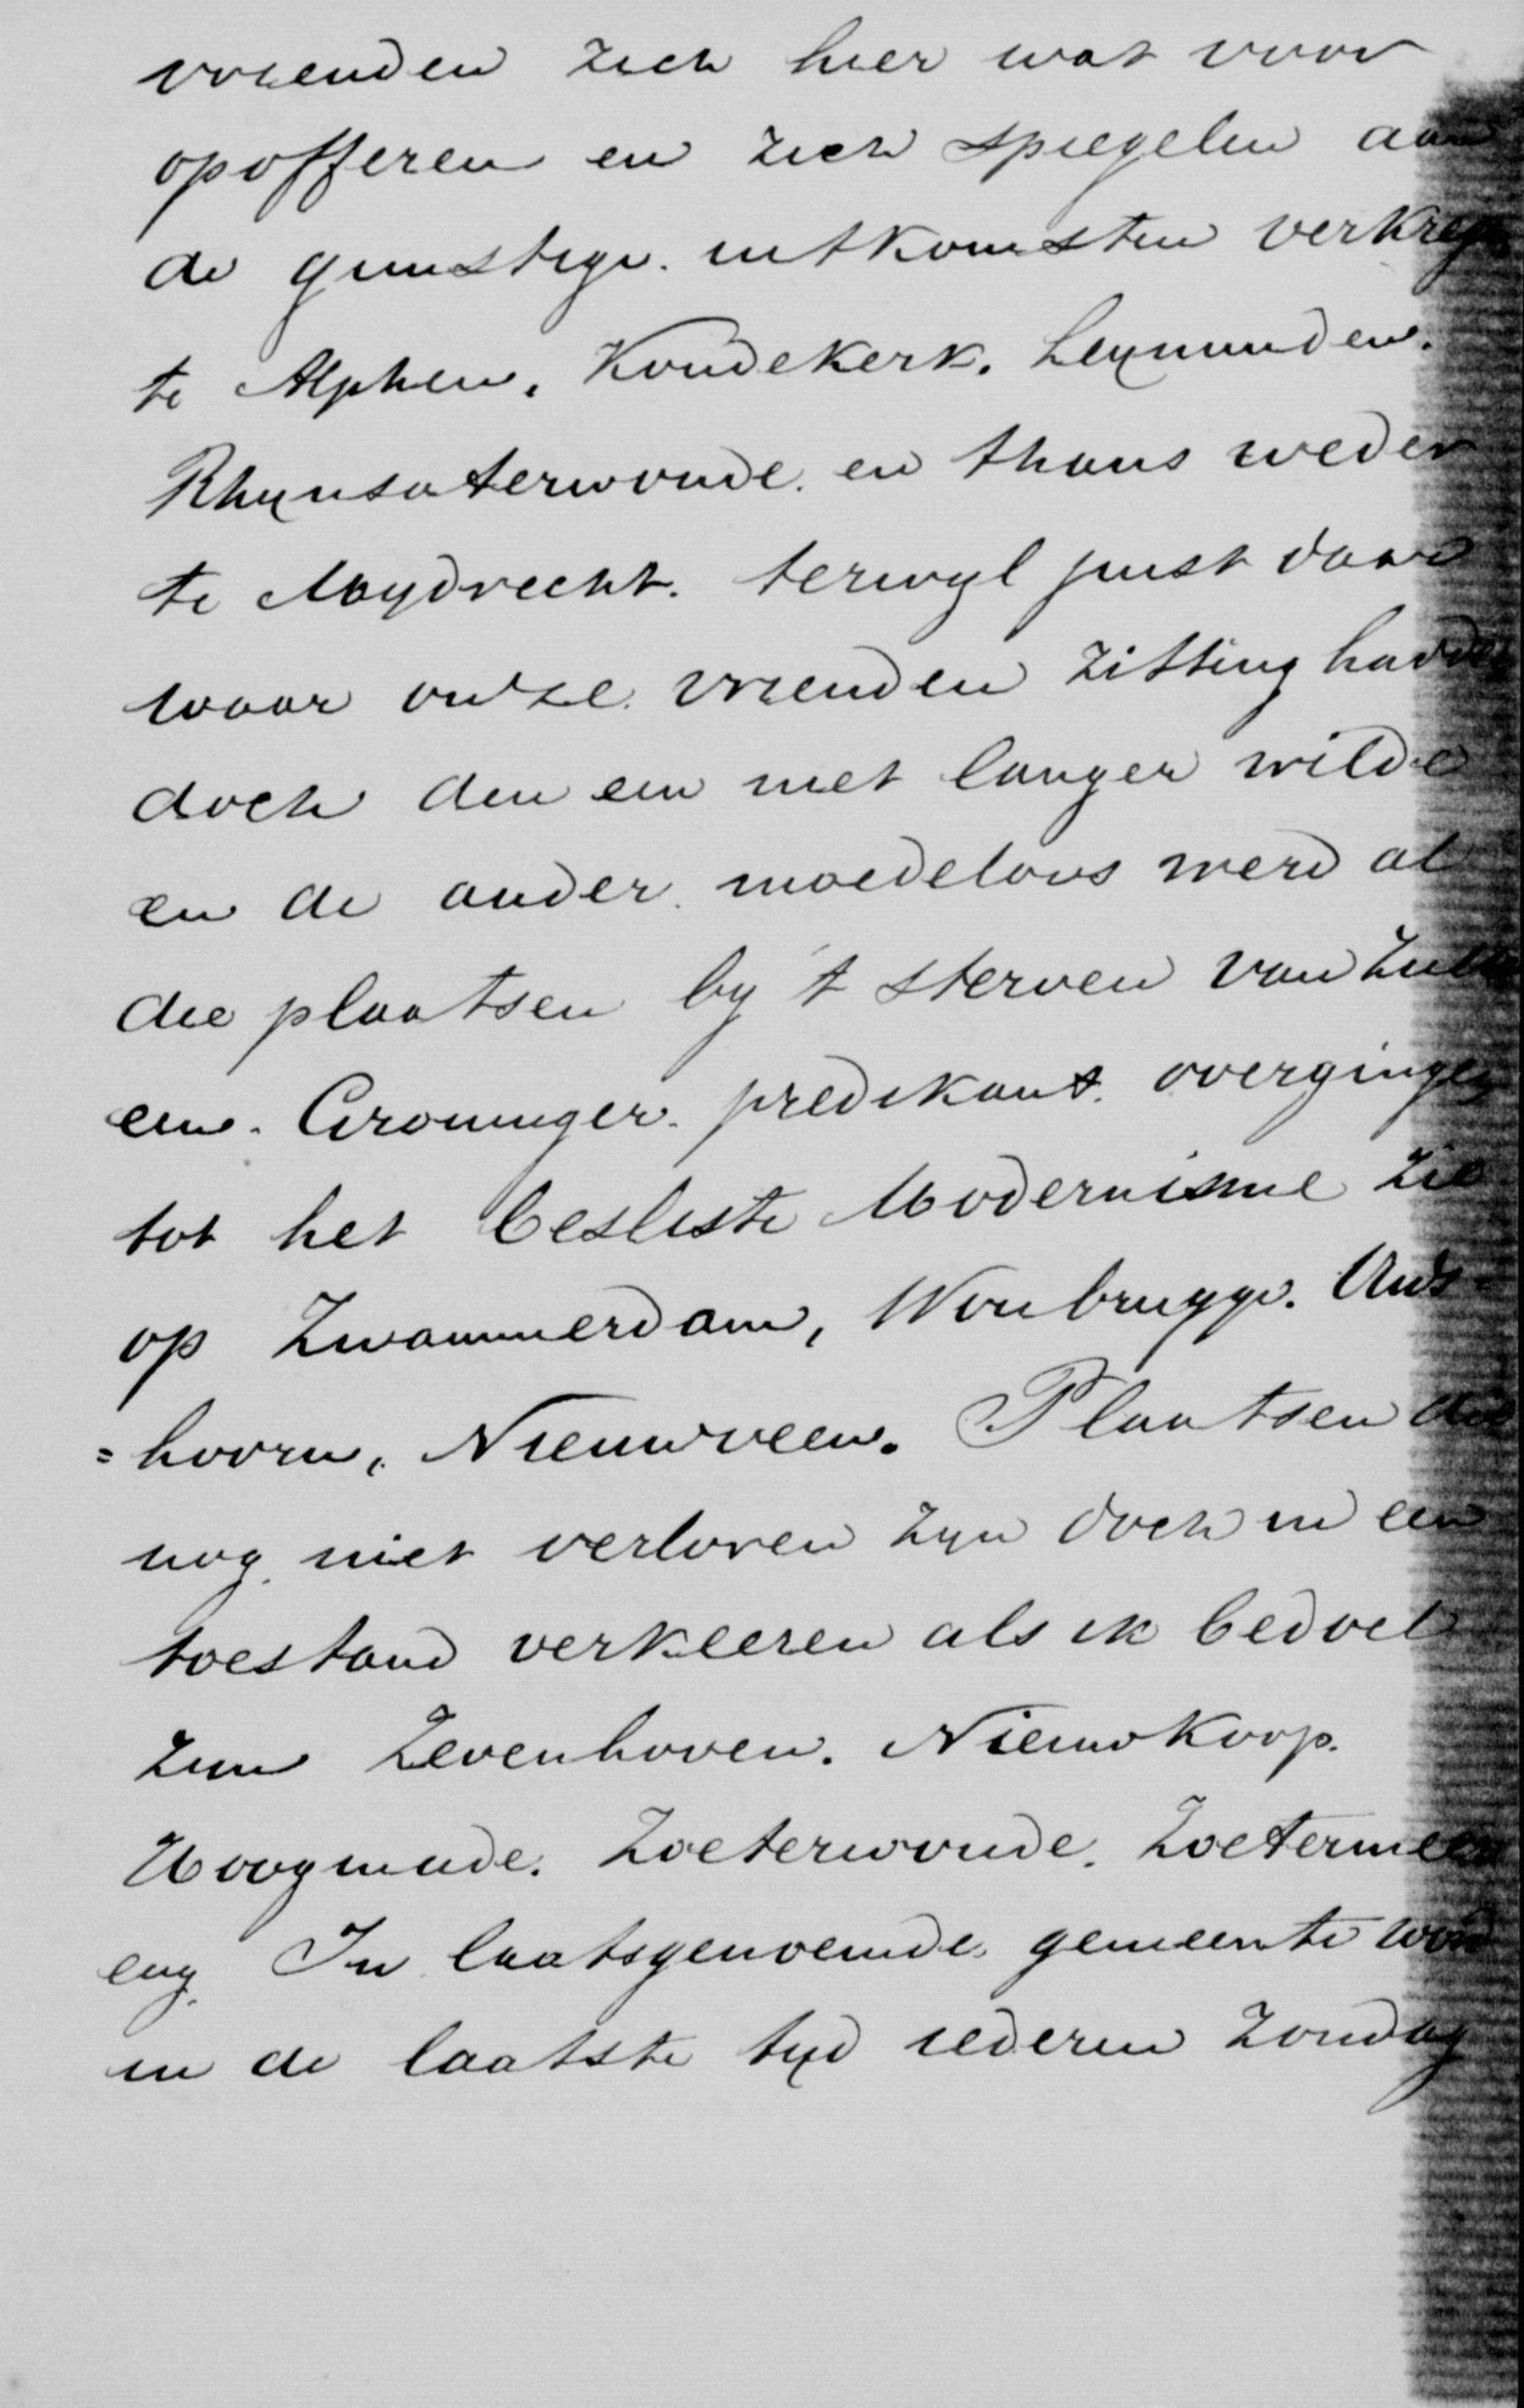 vrienden zich hier wat voor
opofferen en zich spiegelen aan
de gunstige uitkomsten verkregen
te Alphen, Koudekerk. Leymuiden.
Rhynsaterwoude. en thans weder
te Mydrecht. terwyl juist daar
waar onze vrienden zitting hadden
doch den een niet langer wilde
en de ander moedeloos werd al
die plaatsen by 't sterven van zulk
een Groninger predikant overgingen
tot het besliste Modernisme zie
op Zwammerdam, Woubrugge. Ouds-
=hoorn, Nieuwveen. Plaatsen die
nog niet verloren zyn doch in een
toestand verkeeren als ik bedoel
zyn Zevenhoven. Nieuwkoop.
Hoogmade. Zoeterwoude. Zoetermeer
enz. In laatsgenoemde gemeente word
in de laatste tyd iederen Zondag